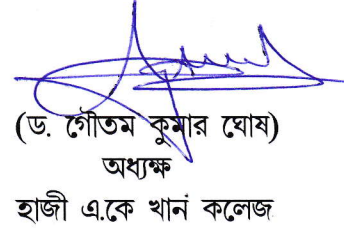 (ড. গৌতম কুমার ঘোষ)
অধ্যক্ষ
হাজী এ.কে খান কলেজ